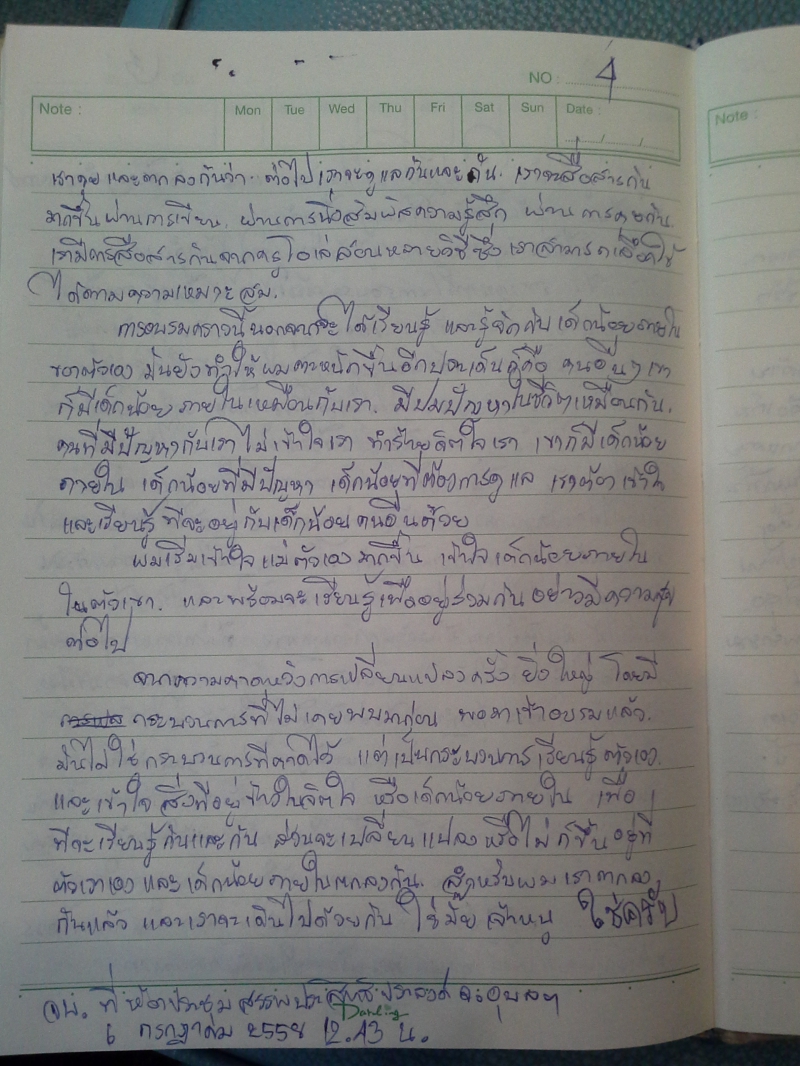 NO : 4
Note : Mon Tue Wed Thu Fri Sat Sun Date :
เราคุย และตกลงกันว่า ต่อไปเราจะดูแลกันและกัน. เราจะสื่อสารกัน
มากขึ้นผ่านการเขียน, ผ่านการนั่งสัมผัสความรู้สึก ผ่านการคุยกัน.
เรามีการสื่อสารกันจากครูโอเล่สอนหลายวิธีซึ่งเราสามารถเลือกใช้
ได้ตามความเหมาะสม.
การอบรมคราวนี้นอกจากจะได้เรียนรู้ และรู้จักกับเด็กน้อยภายใน
ของตัวเอง มันยังทำให้ผมตระหนักขึ้นอีกประเด็นคือ คนอื่นๆ เขา
ก็มีเด็กน้อยภายในเหมือนกับเรา. มีปมปัญหาในชีวิตเหมือนกัน.
คนที่มีปัญหากับเรา ไม่เข้าใจเรา ทำร้ายจิตใจเรา เขาก็มีเด็กน้อย
ภายใน เด็กน้อยที่มีปัญหา เด็กน้อยที่ต้องการดูแล เราต้องเข้าใจ
และเรียนรู้ที่จะอยู่กับเด็กน้อยคนอื่นด้วย
ผมเริ่มเข้าใจแม่ตัวเองมากขึ้น เข้าใจเด็กน้อยภายใน
ในตัวเขา. และพร้อมจะเรียนรู้เพื่ออยู่ร่วมกันอย่างมีความสุข
ต่อไป
จากความคาดหวังการเปลี่ยนแปลงครั้งยิ่งใหญ่ โดยมี
กระบวนการที่ไม่เคยพบมาก่อน พอมาเข้าอบรมแล้ว.
มันไม่ใช่กระบวนการที่คาดไว้ แต่เป็นกระบวนการเรียนรู้ตัวเอง.
และเข้าใจสิ่งที่อยู่ข้างในจิตใจ หรือเด็กน้อยภายใน เพื่อ
ที่จะเรียนรู้กันและกัน ส่วนจะเปลี่ยนแปลงหรือไม่ ก็ขึ้นอยู่ที่
ตัวเราเองและเด็กน้อยภายในตกลงกัน. สำหรับผมเราตกลง
กันแล้ว และเราจะเดินไปด้วยกัน ใช่มั้ย เจ้าหนู ใช่ครับ
จบ. ที่ ห้องประชุม สรรพสิทธิประสงค์ จ.อุบลฯ
Darling
6 กรกฎาคม 2558 12.43 น.
Note :